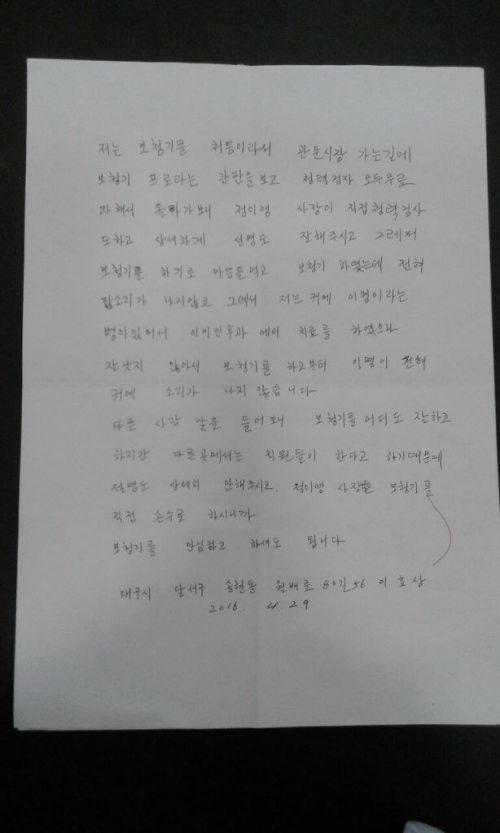 저는 보청기를 처음이라서 관문시장 가는길에
보청기 프로라는 간판을보고 청력검사 모두무료
라해서 올라가보니 정이영 사장이 직접청력검사
도하고 상세하게 설명도 잘해주시고 그래서
보청기를 하기로 마음을먹고 보청기 하였는데 전혀
잡소리가 나지않고 그래서 저는 귀에 이명이라는
병이있어서 이비인후과 에서 치료를 하였으나
잘낫지 않아서 보청기를 하고부터 이명이 전혀
귀에 소리가 나지 않습니다
다른 사람 말을 들어보니 보청기를어디도 잘하고
하지만 다른곳에서는 직원들이 한다고 하기때문에
설명도 상세히 안해주시고. 정이영 사장님은 보청기를
직접 손수로 하시니까
보청기를 안심하고 하셔도 됩니다
대구시 달서구 송현동 월배로 80길56 이호상
2016. 4. 29